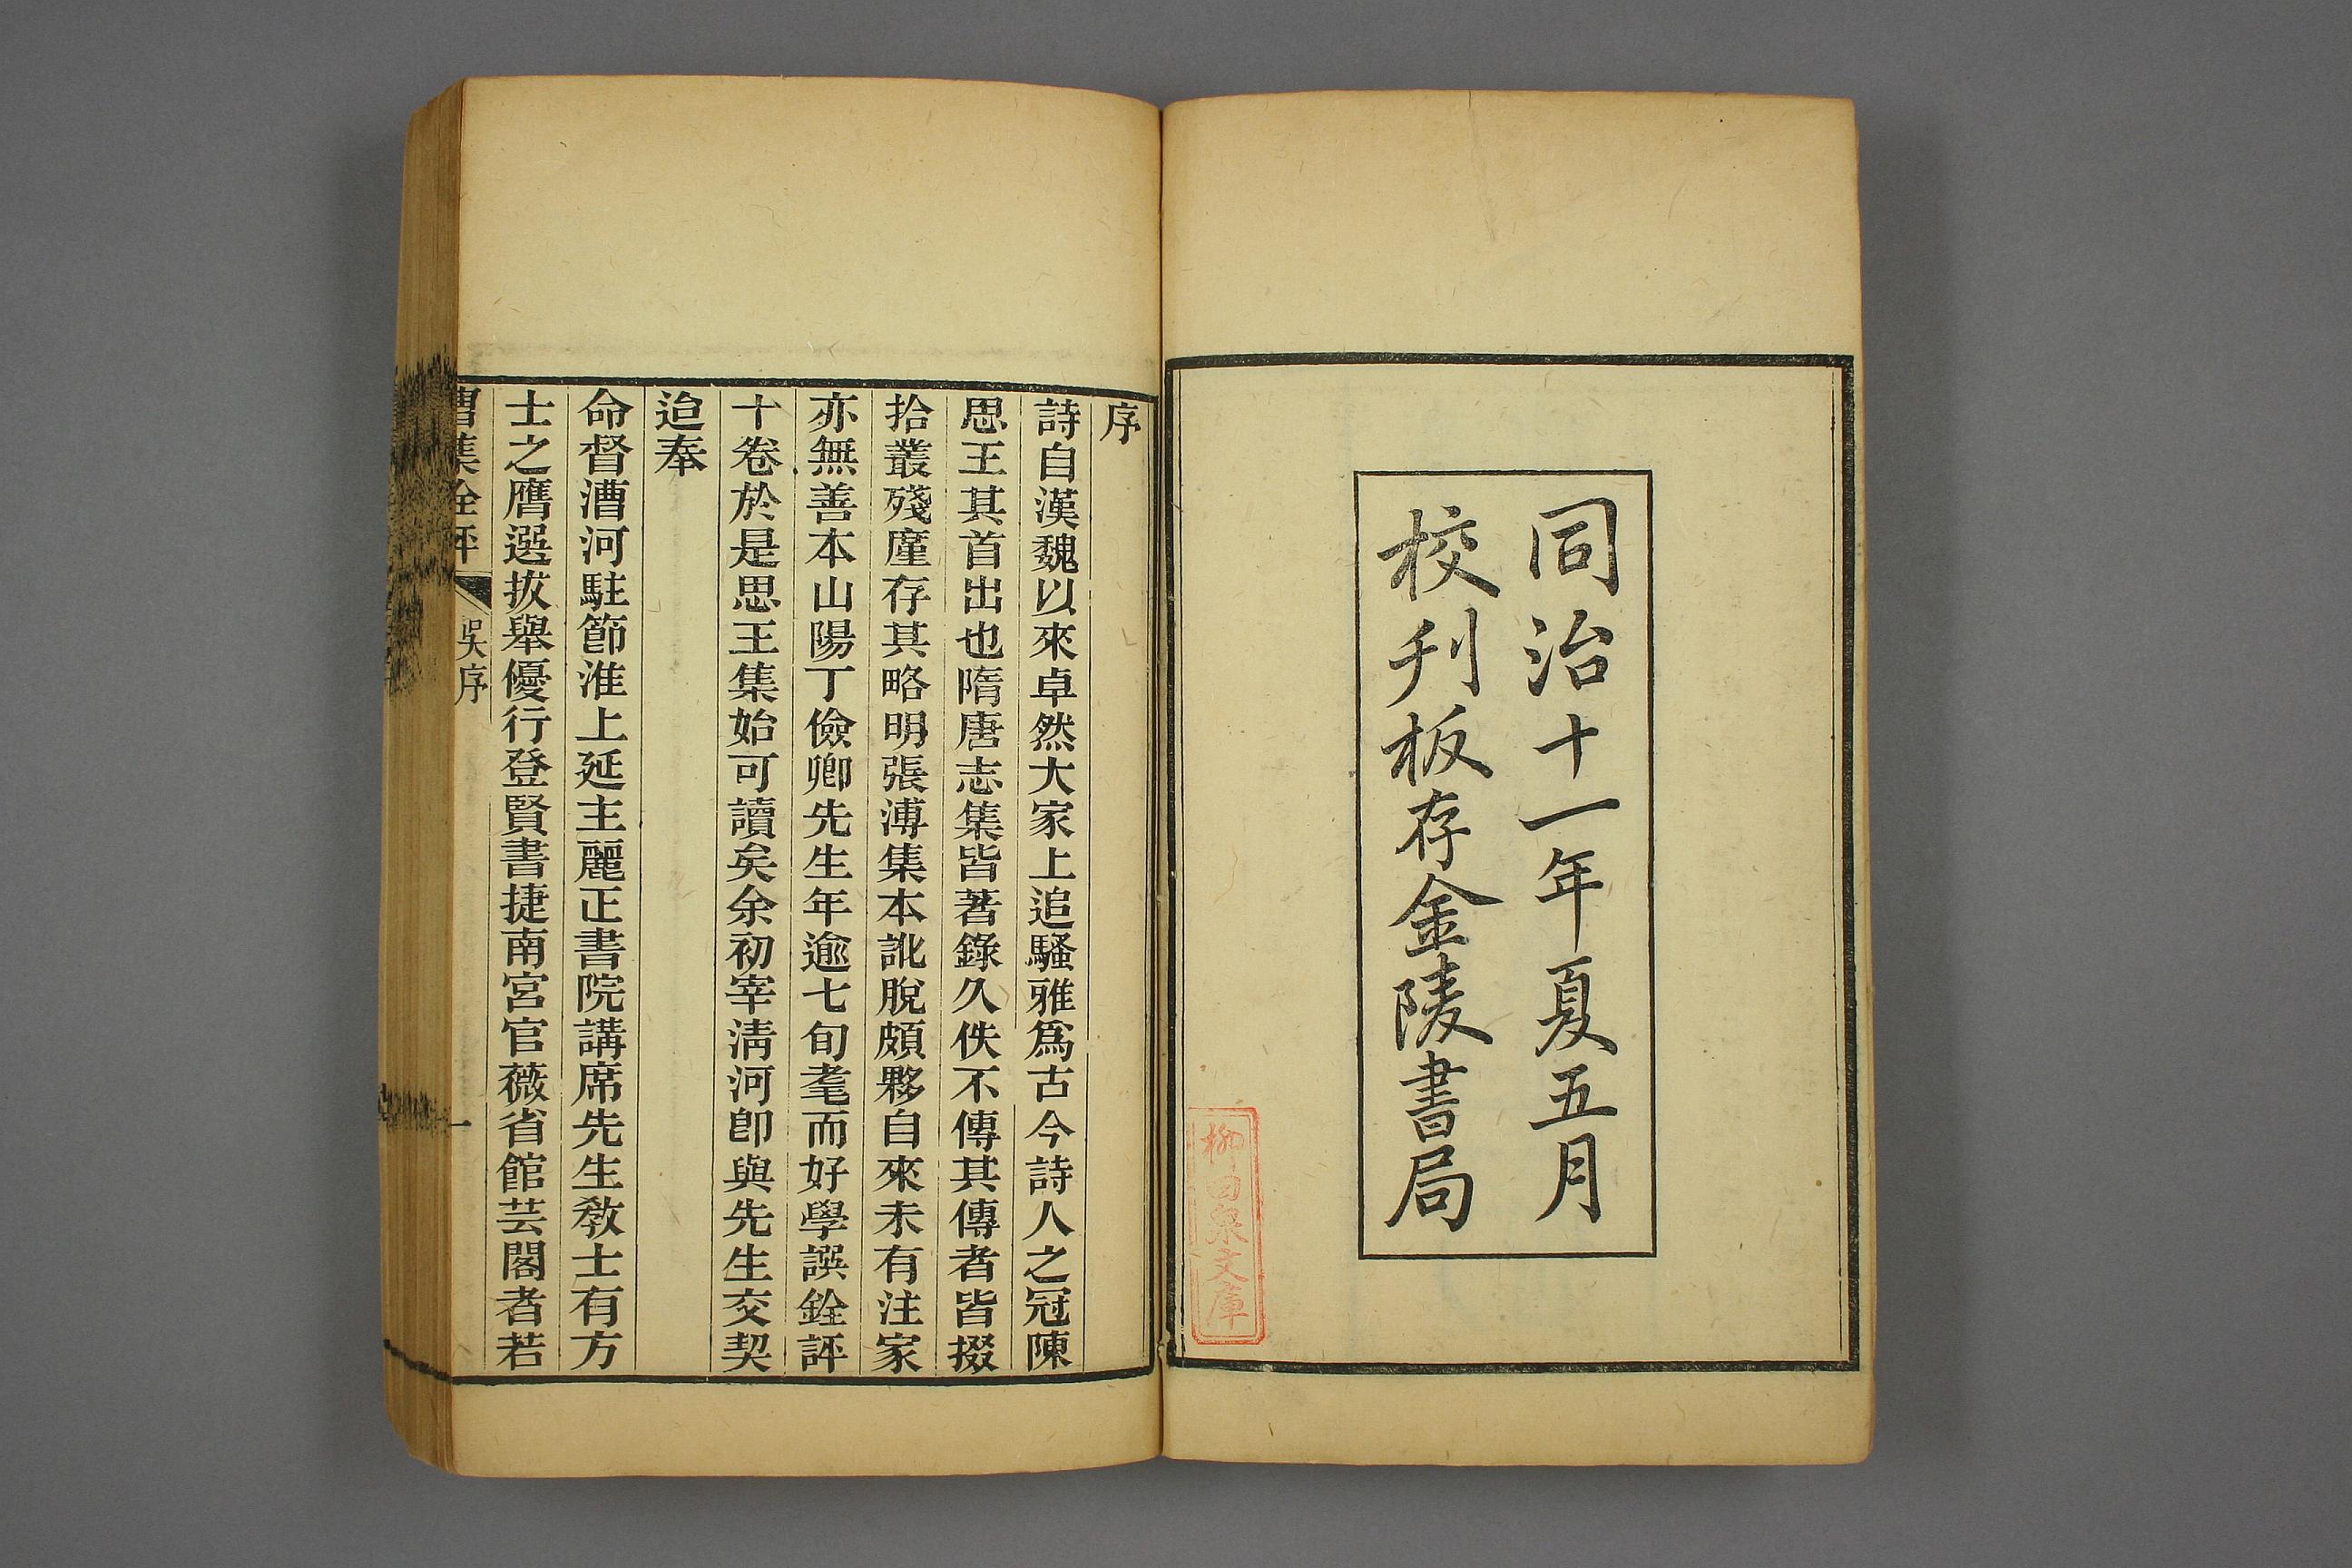 同治十一年夏五月
校刋板存金陵書局
柳田泉文庫
序
詩自漢魏以來卓然大家上追騷雅爲古今詩人之冠陳
思王其首出也隋唐志集皆著錄久佚不傳其傳者皆掇
拾叢殘廑存其略明張溥集本訛脫頗夥自來未有注家
亦無善本山陽丁儉卿先生年逾七旬耄而好學譔銓評
十卷於是思王集始可讀矣余初宰淸河卽與先生交契
迨奉
命督漕河駐節淮上延主麗正書院講席先生敎士有方
士之膺選拔舉優行登賢書捷南宮官薇省館芸閣者若
曹集銓評
吳序
一